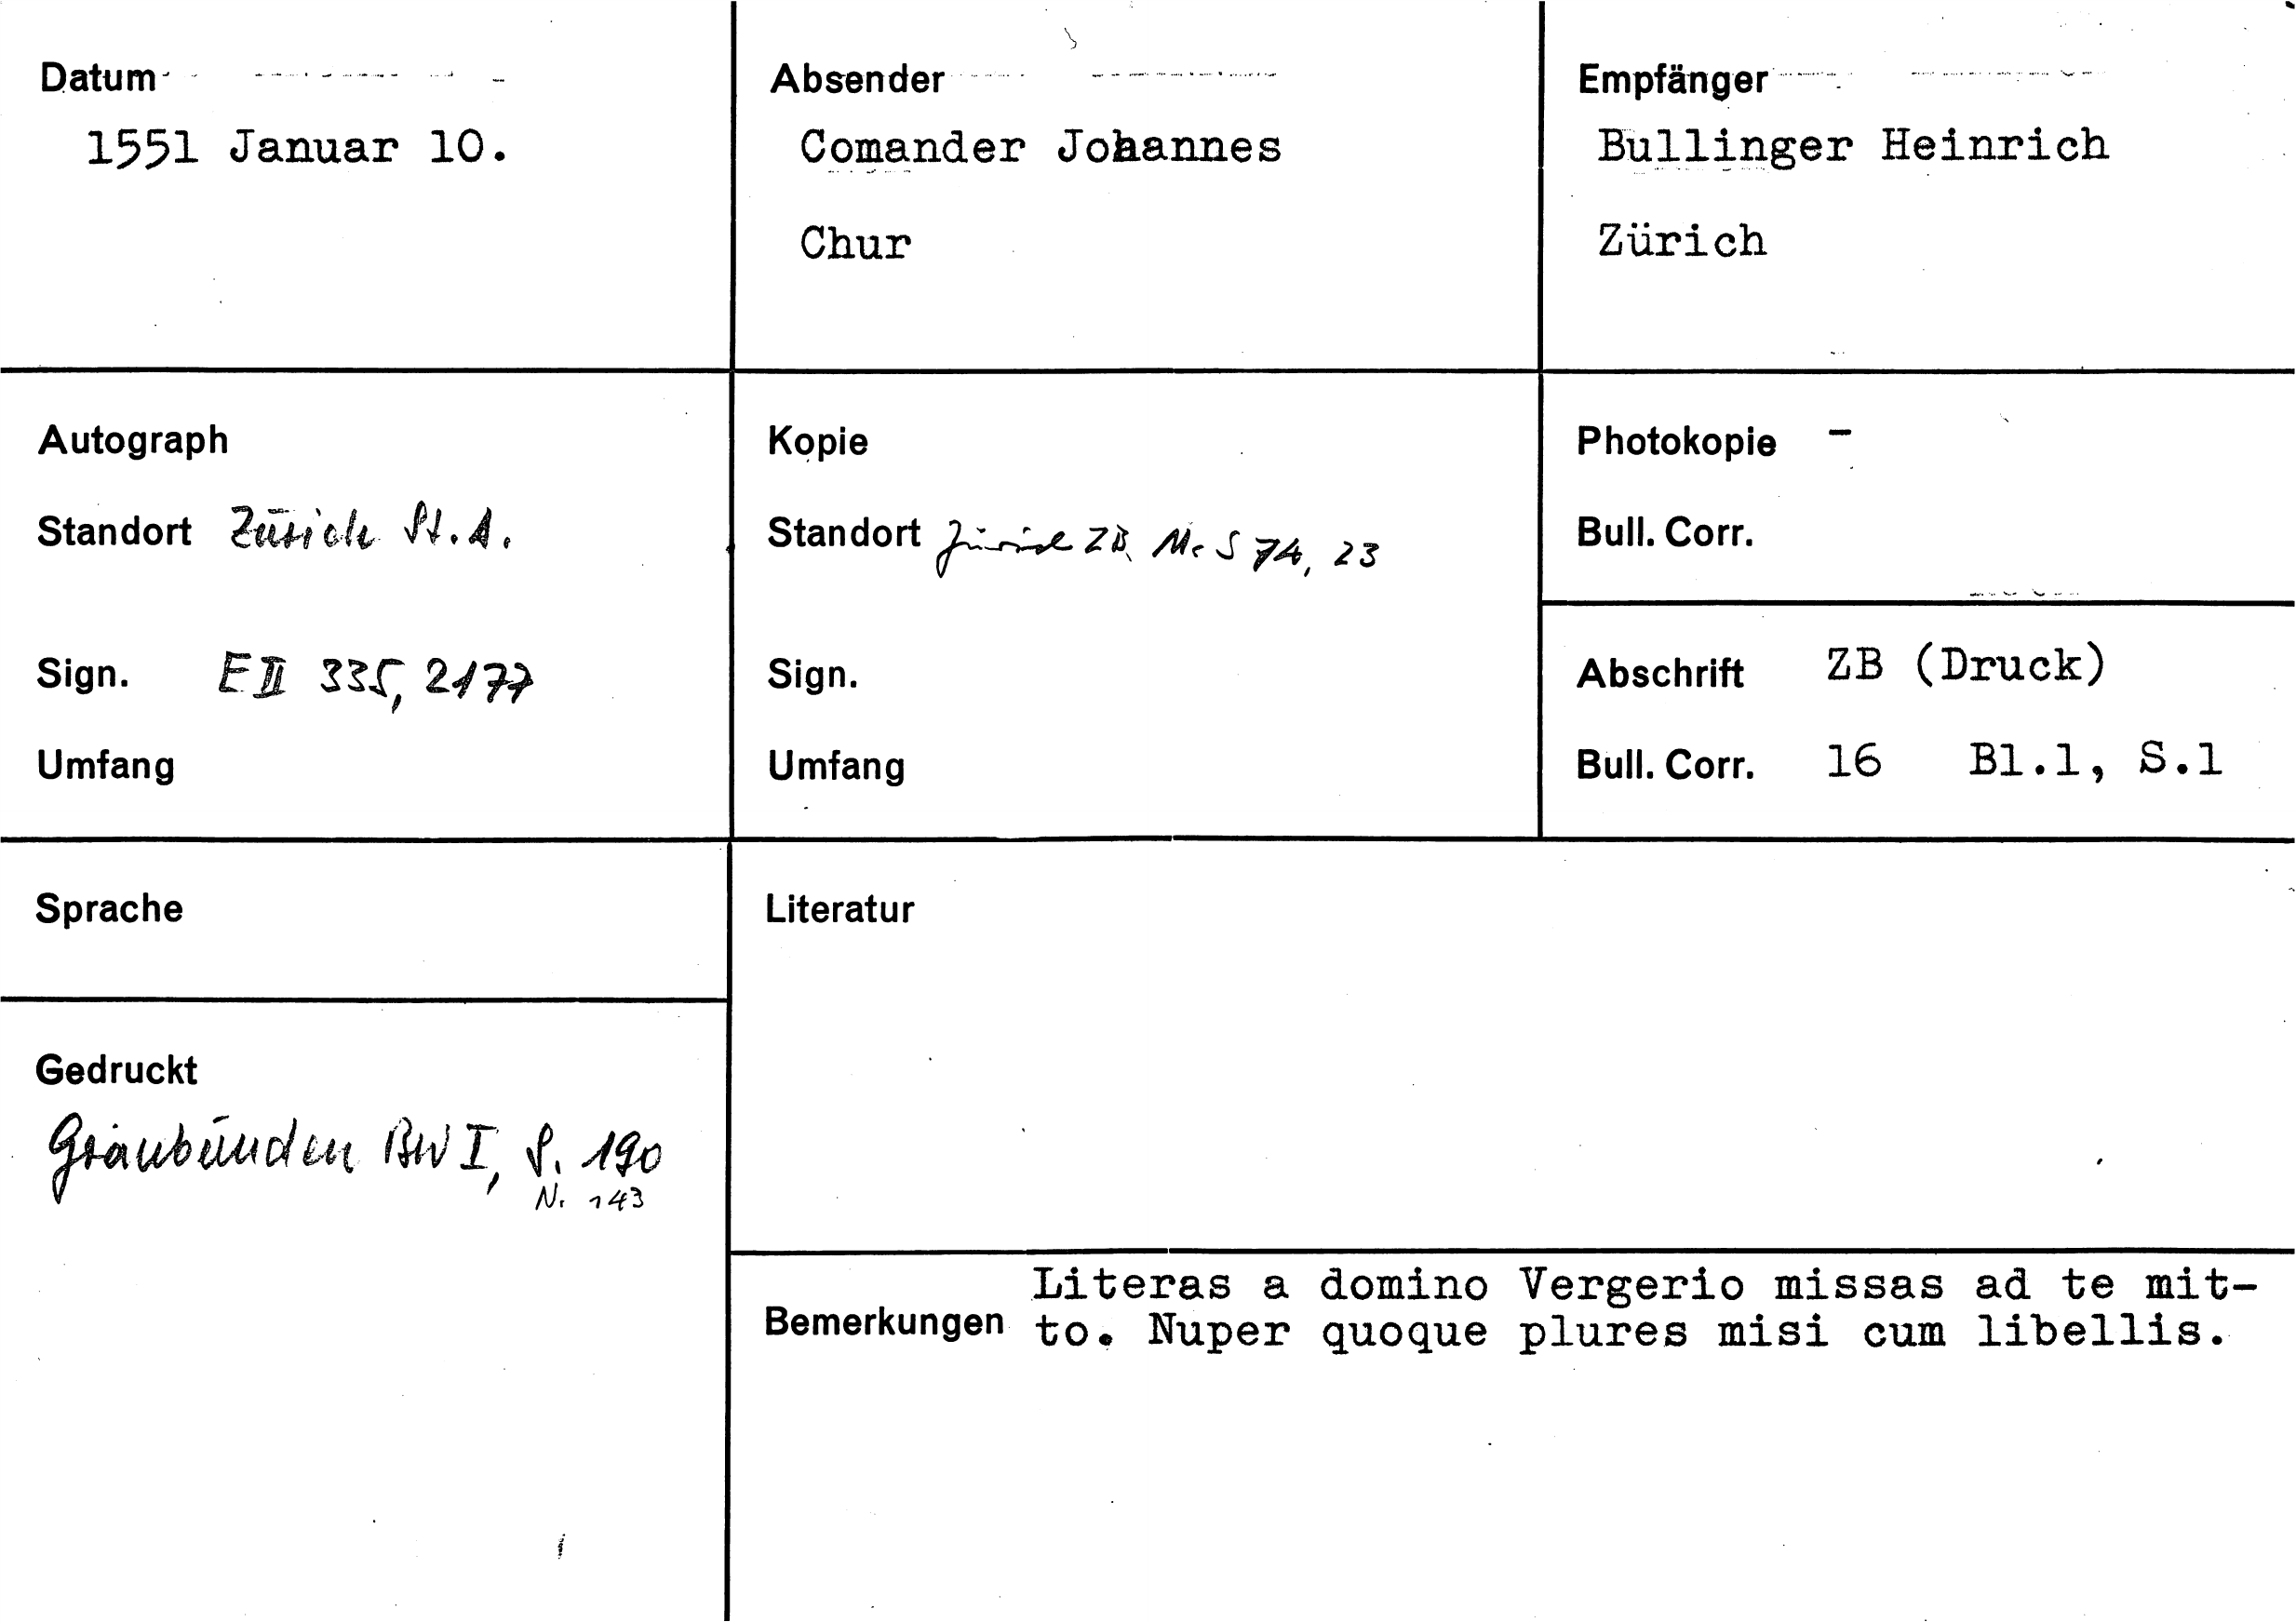 Datum
1551 Januar 10.
Absender
Comander Johannes
Chur
Empfänger
Bullinger Heinrich
Zürich
Autograph
Standort Zürich St.A.
Sign. E II 335, 2177
Umfang
Kopie
Standort Zürich ZB, Ms S 74, 23
Sign.
Umfang
Photokopie -
Bull. Corr.
Abschrift ZB (Druck)
Bull. Corr. 16 Bl.1, S.1
Sprache
Gedruckt
Graubünden BW I, S. 190
N. 143
Literatur
Bemerkungen
Literas a domino Vergerio missas ad te mit-
to. Nuper quoque plures misi cum libellis.